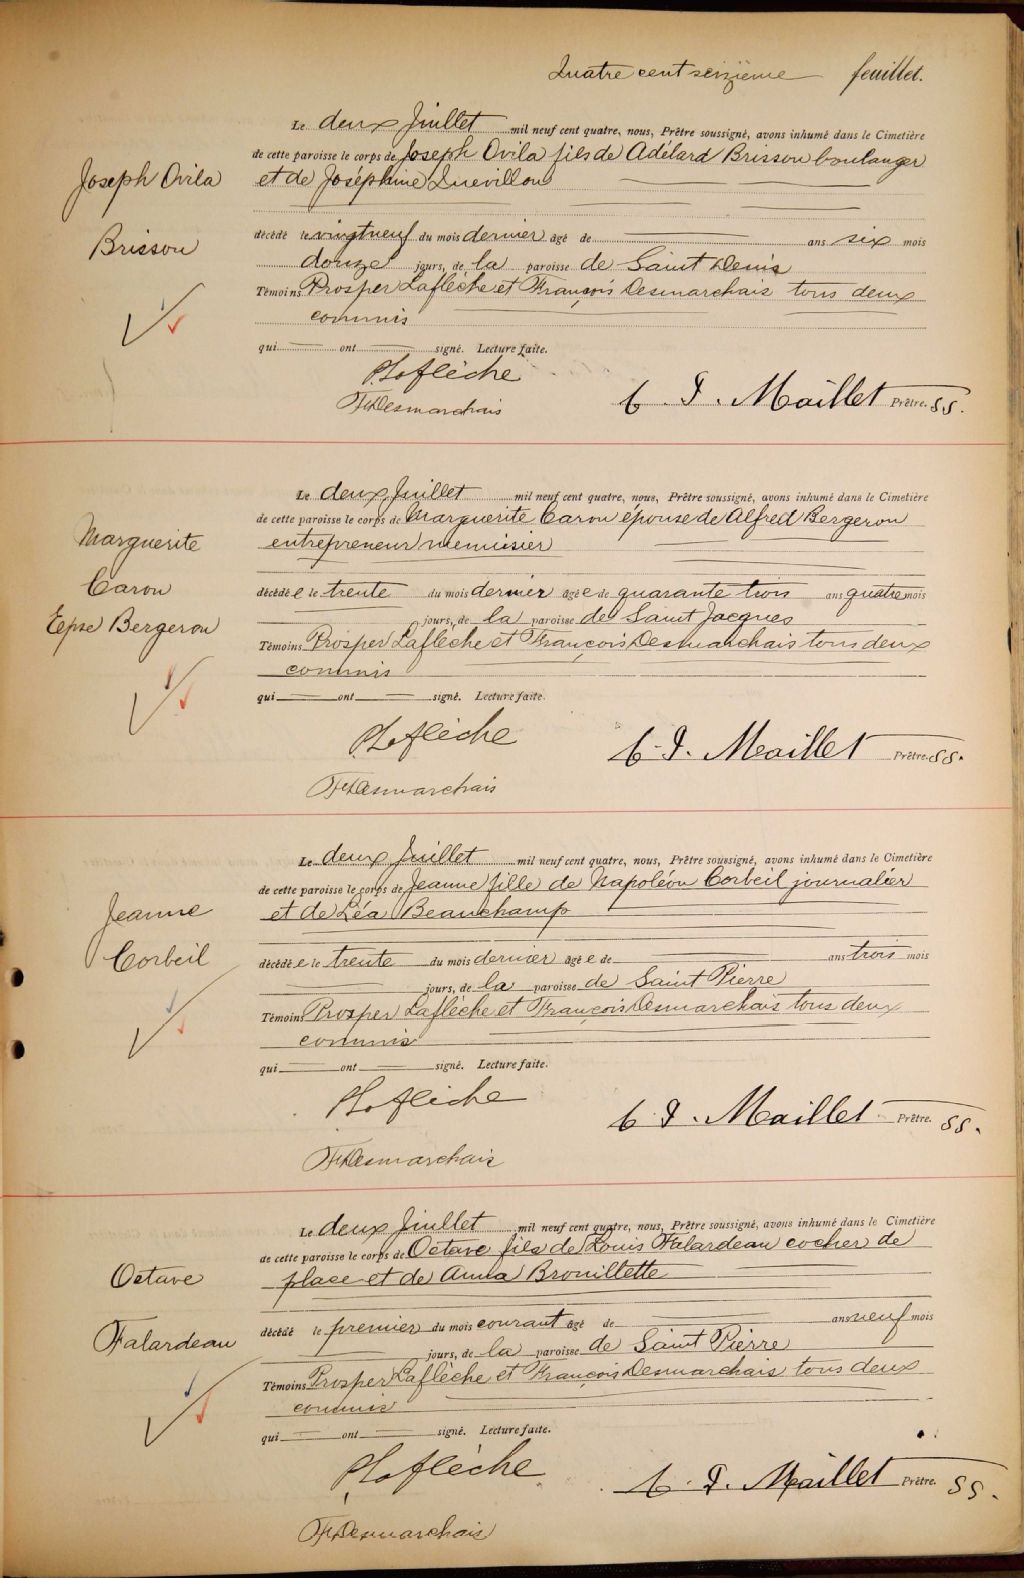 Quatre cent seizième feuillet.
Le deux Juillet mil neuf cent quatre, nous, Prêtre soussigné, avons inhumé dans le Cimetière
de cette paroisse le corps de Joseph Ovila fils de Adélard Brisson boulanger
et de Joséphine Quevillon
Joseph Ovila
Brisson
décédé le vingtneuf du mois dernier âgé de ans six mois
douze jours, de la paroisse de Saint Denis
Témoins Prosper Laflèche et François Desmarchais tous deux
commis
qui ont signé. Lecture faite.
P. Laflèche
F. Desmarchais
C. J. Maillet Prêtre. SS.
Le deux Juillet mil neuf cent quatre, nous, Prêtre soussigné, avons inhumé dans le Cimetière
de cette paroisse le corps de Marguerite Caron épouse de Alfred Bergeron
entrepreneur menuisier
Marguerite
Caron
Epse Bergeron
décédée le trente du mois dernier âgée de quarante trois ans quatre mois
jours, de la paroisse de Saint Jacques
Témoins Prosper Laflèche et François Desmarchais tous deux
commis
qui ont signé. Lecture faite.
P. Laflèche
F. Desmarchais
C. J. Maillet Prêtre. SS.
Le deux Juillet mil neuf cent quatre, nous, Prêtre soussigné, avons inhumé dans le Cimetière
de cette paroisse le corps de Jeanne fille de Napoléon Corbeil journalier
et de Léa Beauchamp
Jeanne
Corbeil
décédée le trente du mois dernier âgée de ans trois mois
jours, de la paroisse de Saint Pierre
Témoins Prosper Laflèche et François Desmarchais tous deux
commis
qui ont signé. Lecture faite.
P. Laflèche
F. Desmarchais
C. J. Maillet Prêtre. SS.
Le deux Juillet mil neuf cent quatre, nous, Prêtre soussigné, avons inhumé dans le Cimetière
de cette paroisse le corps de Octave fils de Louis Falardeau cocher de
place et de Anna Brouillette
Octave
Falardeau
décédé le premier du mois courant âgé de ans neuf mois
jours, de la paroisse de Saint Pierre
Témoins Prosper Laflèche et François Desmarchais tous deux
commis
qui ont signé. Lecture faite.
P. Laflèche
F. Desmarchais
C. J. Maillet Prêtre. SS.